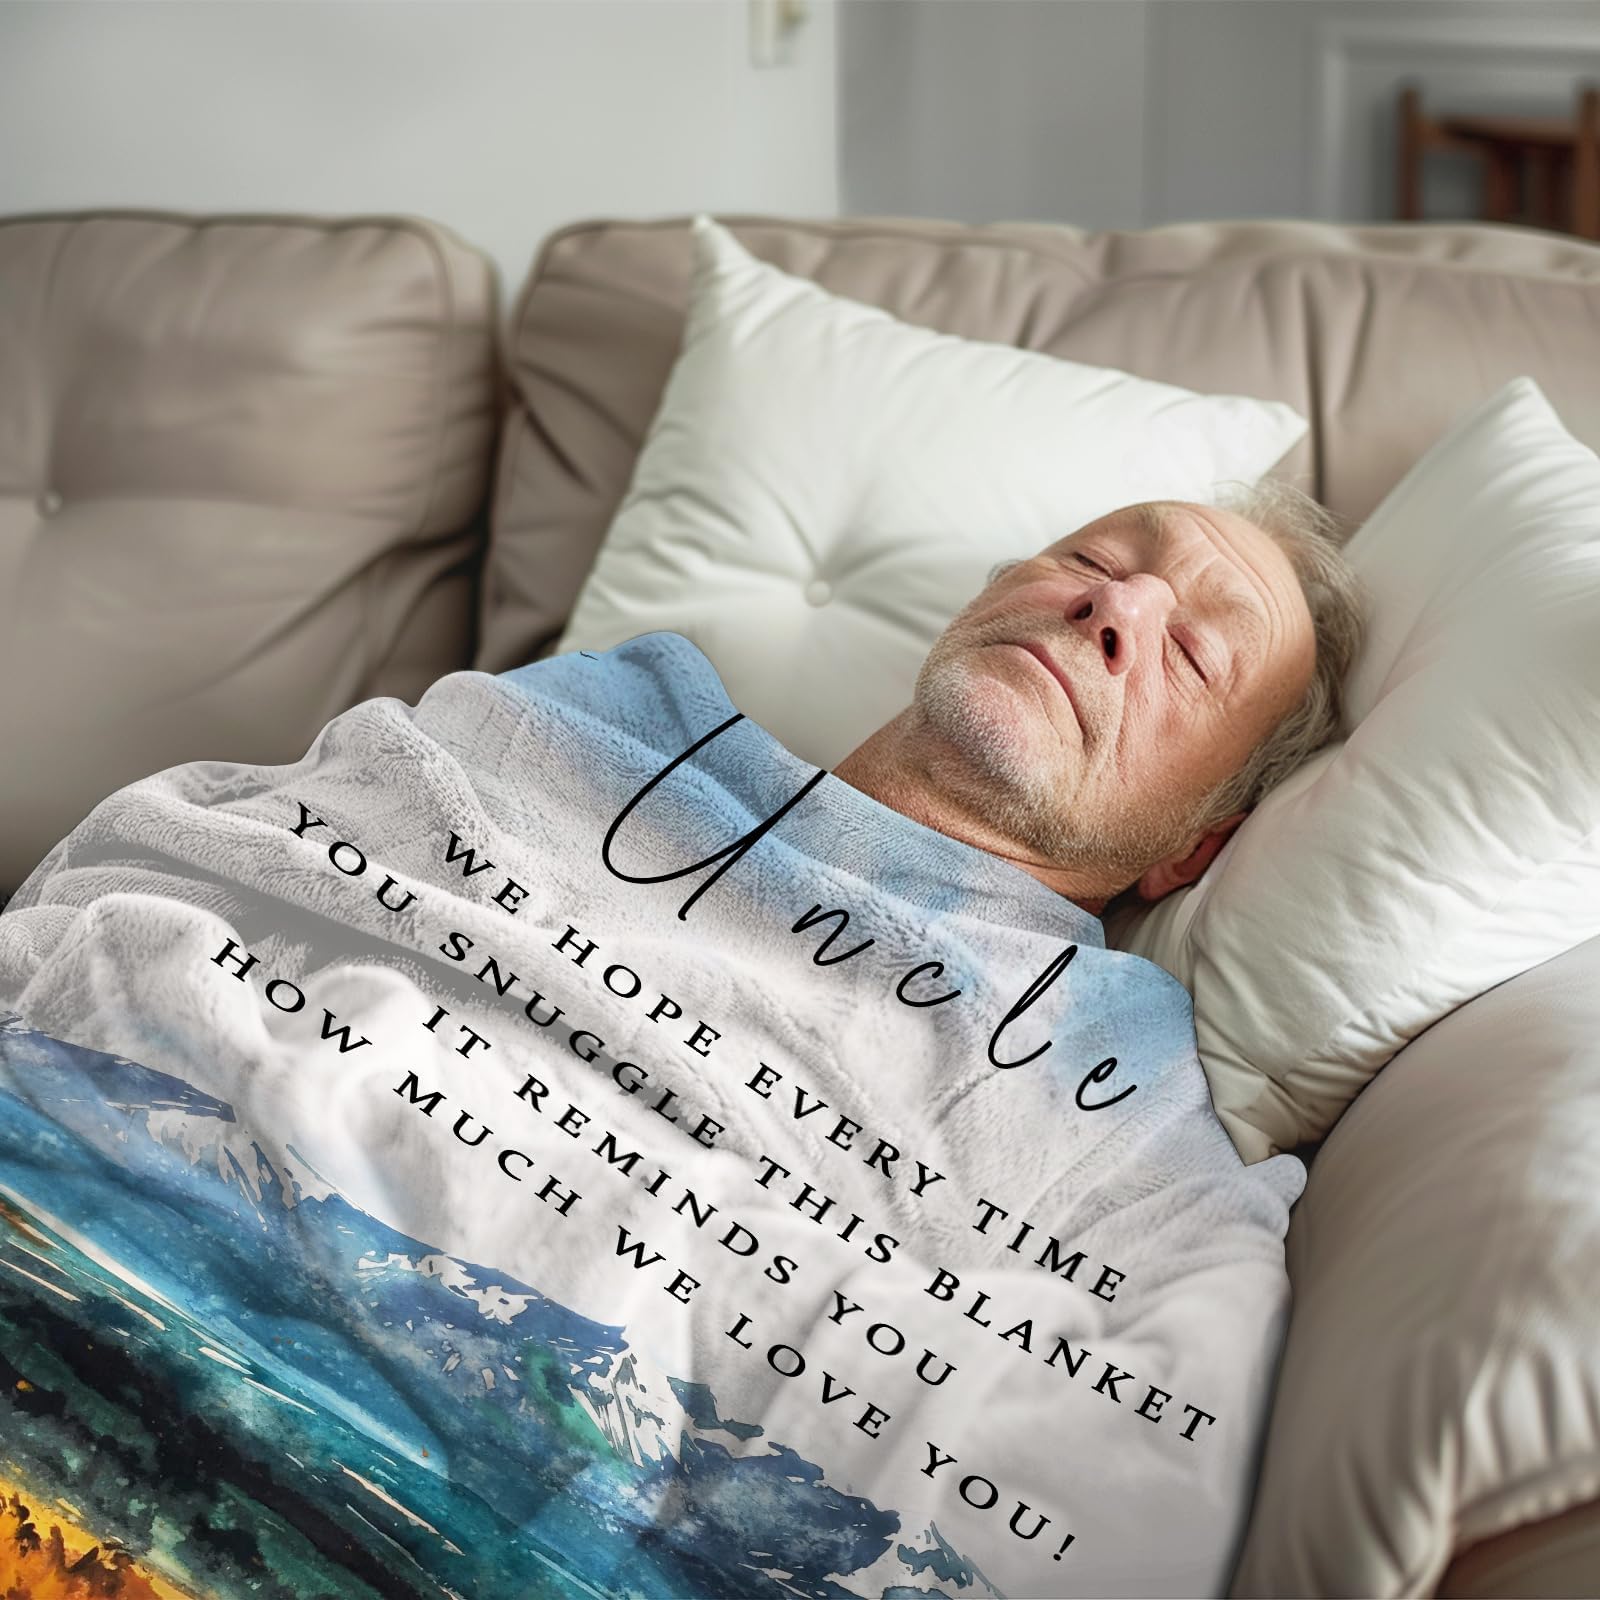 Uncle
WE HOPE EVERY TIME
YOU SNUGGLE THIS BLANKET
IT REMINDS YOU
HOW MUCH WE LOVE YOU!